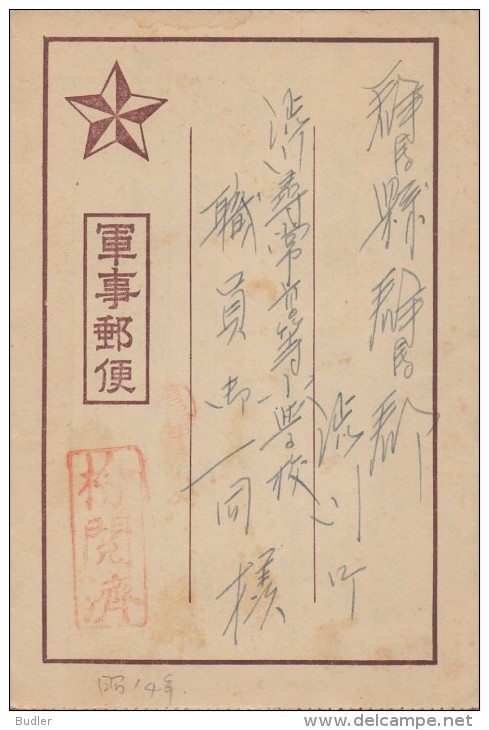 群馬縣群馬郡
渋川町
渋川尋常高等小学校
職員御一同様
軍事郵便
検閲済
昭14年
Budler